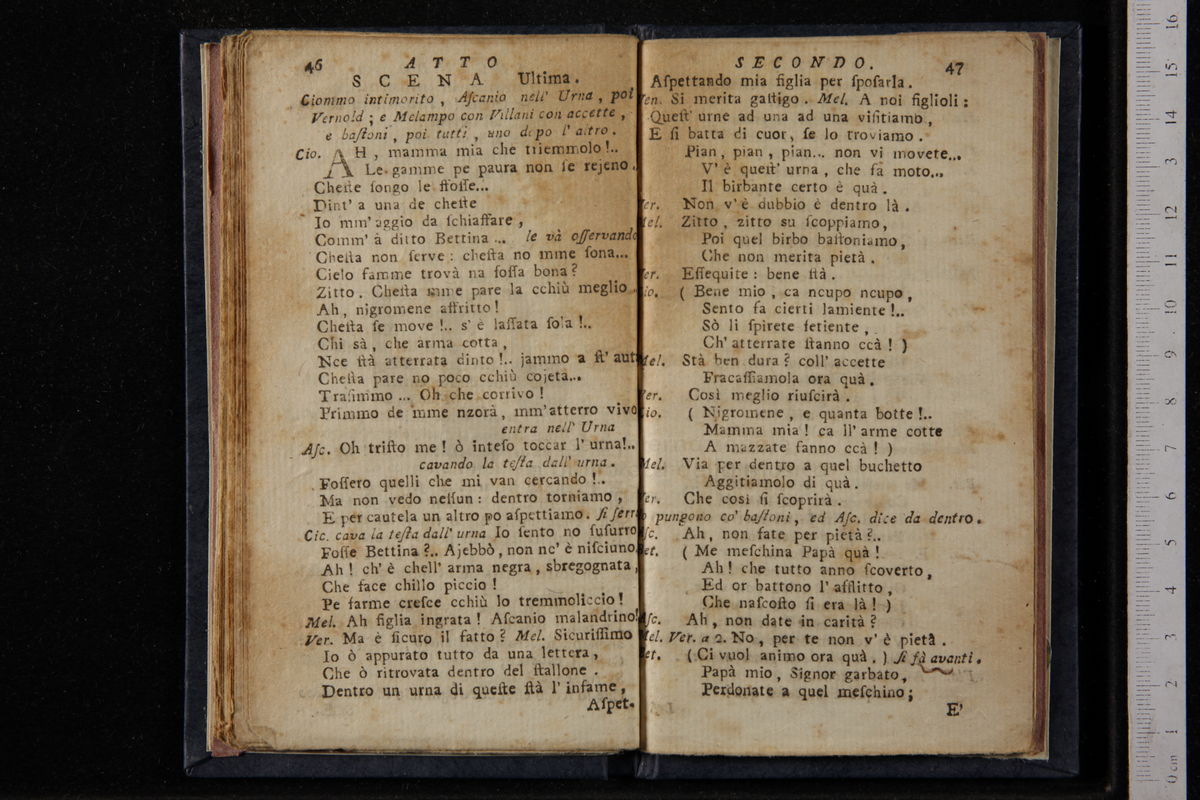 46 ATTO
SCENA Ultima.
Ciommo intimorito, Aſcanio nell' Urna, poi
Vernold; e Melampo con Villani con accette,
e baſtoni, poi tutti, uno dopo l' altro.
Cio. AH, mamma mia che triemmolo!..
Le gamme pe paura non ſe rejeno.
Cheſte ſongo le ffoſſe...
Dint' a una de cheſte
Io mm' aggio da ſchiaffare,
Comm' à ditto Bettina... le và oſſervando
Cheſta non ſerve: cheſta no mme ſona...
Cielo famme trovà na foſſa bona?
Zitto. Cheſta mme pare la cchiù meglio.
Ah, nigromene affritto!
Cheſta ſe move!.. s' è laſſata ſola!..
Chi sà, che arma cotta,
Nce ſtà atterrata dinto!.. jammo a ſt' aut
Cheſta pare no poco cchiù cojeta...
Traſimmo... Oh che corrivo!
Primmo de mme nzorà, mm' atterro vivo
entra nell' Urna
Aſc. Oh triſto me! ò inteſo toccar l' urna!..
cavando la teſta dall' urna.
Foſſero quelli che mi van cercando!..
Ma non vedo neſſun: dentro torniamo,
E per cautela un altro po aſpettiamo. ſi ſerr
Cic. cava la teſta dall' urna Io ſento no ſuſurro
Foſſe Bettina?.. Ajebbò, non nc' è niſciuno
Ah! ch' è chell' arma negra, sbregognata,
Che face chillo piccio!
Pe farme creſce cchiù lo tremmoliccio!
Mel. Ah figlia ingrata! Aſcanio malandrino!
Ver. Ma è ſicuro il fatto? Mel. Sicuriſſimo
Io ò appurato tutto da una lettera,
Che ò ritrovata dentro del ſtallone.
Dentro un urna di queſte ſtà l' infame,
Aſpet-
SECONDO. 47
Aſpettando mia figlia per ſpoſarla.
Ven. Si merita gaſtigo. Mel. A noi figlioli:
Queſt' urne ad una ad una viſitiamo,
E ſi batta di cuor, ſe lo troviamo.
Pian, pian, pian... non vi movete...
V' è queſt' urna, che fa moto...
Il birbante certo è quà.
Ver. Non v' è dubbio è dentro là.
Mel. Zitto, zitto su ſcoppiamo,
Poi quel birbo baſtoniamo,
Che non merita pietà.
Ver. Eſſequite: bene ſtà.
io. (Bene mio, ca ncupo ncupo,
Sento fa cierti lamiente!..
Sò li ſpirete fetiente,
Ch' atterrate ſtanno ccà!)
Mel. Stà ben dura? coll' accette
Fracaſſiamola ora quà.
Ver. Così meglio riuſcirà.
io. (Nigromene, e quanta botte!..
Mamma mia! ca ll' arme cotte
A mazzate fanno ccà!)
Mel. Via per dentro a quel buchetto
Aggitiamolo di quà.
Ver. Che così ſi ſcoprirà.
pungono co' baſtoni, ed Aſc. dice da dentro.
ſc. Ah, non fate per pietà?..
et. (Me meſchina Papà quà!
Ah! che tutto anno ſcoverto,
Ed or battono l' afflitto,
Che naſcoſto ſi era là!)
ſc. Ah, non date in carità?
Mel. Ver. a 2. No, per te non v' è pietà.
et. (Ci vuol animo ora quà.) ſi fà avanti.
Papà mio, Signor garbato,
Perdonate a quel meſchino;
E'
0 cm 1 2 3 4 5 6 7 8 9 10 11 12 13 14 15 16